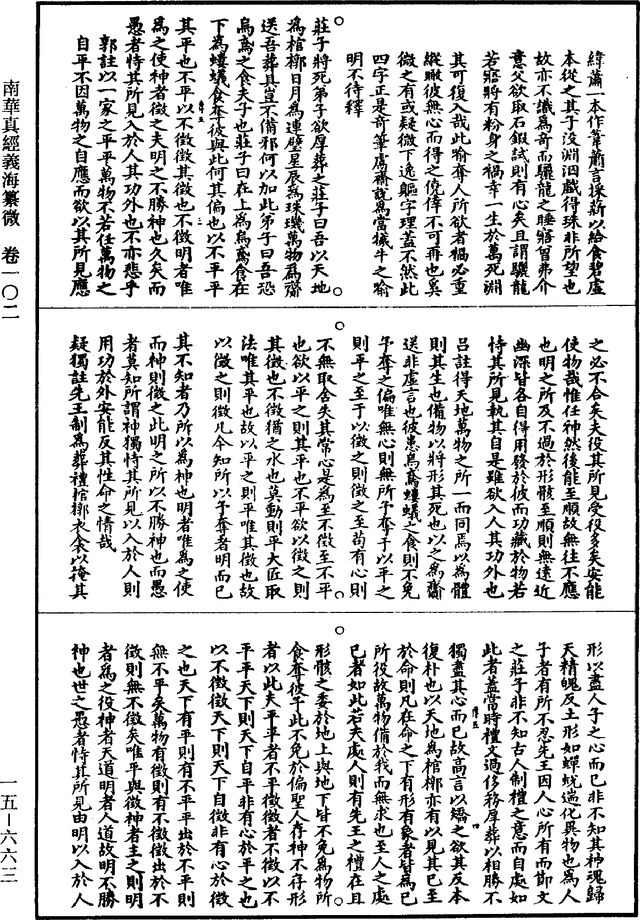 南華真經義海纂微　卷一〇二
一五—六六三
緯蕭一本作葦蕭言採薪以給食碧虛
本從之其子沒淵泅戲得珠非所望也
故亦不識為奇而驪龍之睡寤曾弗介
意父欲取石鍛試則有心矣且謂驪龍
若寤將有粉身之禍幸一生於萬死淵
其可復入哉此喻奪人所欲者禍必重
縱瞰彼無心而得之僥倖不可再也奚
微之有或疑微下逸軀字理蓋不然此
四字正是奇筆虜齋説為當犧牛之喻
明不待釋
莊子將死弟子欲厚葬之莊子曰吾以天地
為棺槨日月為連璧星辰為珠璣萬物為齎
送吾葬具豈不備邪何以加此弟子曰吾恐
烏鳶之食夫子也莊子曰在上為烏鳶食在
下為螻蟻食奪彼與此何其偏也以不平平
其平也不平以不徵徵其徵也不徵明者唯
為之使神者徵之夫明之不勝神也久矣而
愚者恃其所見入於人其功外也不亦悲乎
郭註以一家之平平萬物不若任萬物之
自平不因萬物之自應而欲以其所見應
之必不合矣夫役其所見受役多矣安能
使物哉惟任神然後能至順故無往不應
也明之所及不過於形骸至順則無遠近
幽深皆各自得用發於彼而功藏於物若
恃其所見執其自是雖欲入人其功外也
呂註得天地萬物之所一而同焉以為體
則其生也備物以將形其死也以之為齎
送非虛言也彼患烏鳶螻蟻之食則不免
予奪之偏唯無心則無所予奪于以平之
則平之至于以徵之則徵之至苟有心則
不無取舍失其常心是為至不徵至不平
也欲以平之則其平也不平欲以徵之則
其徵也不徵猶之水也莫動則平大匠取
法唯其平也故以平之則平唯其徵也故
以徵之則徵凡今知所以予奪者明而已
其不知者乃所以為神也明者唯為之使
而神則徵之此明之所以不勝神也而愚
者莫知所謂神獨恃其所見以入於人則
用功於外安能反其性命之情哉
疑獨註先王制為葬禮棺槨衣衾以掩其
形以盡人子之心而已非不知其神魂歸
天精魄反土形如蟬蛻遄化異物也為人
子者有所不忍先王因人心所有而節文
之莊子非不知古人制禮之意而自處如
此者蓋當時禮文過侈務厚葬以相勝不
獨盡其心而已故高言以矯之欲其反本
復朴也以天地為棺槨亦有以見其已至
於命則凡在命之下有形有象者皆為已
所役故萬物備於我而無求也至人之處
已者如此若夫處人則有先王之禮在且
形骸之委於地上與地下皆不免為物所
食奪彼予此不免於偏聖人存神不存形
者以此夫平平者不平徵徵者不徵以不
平平天下則天下自平非有心於平之也
以不徵徵天下則天下自徵非有心於徵
之也天下有平則有不平平出於不平則
無不平矣萬物有徵則有不徵徵出於不
徵則無不徵矣唯平與徵神者主之則明
者為之役神者天道明者人道故明不勝
神也世之愚者恃其所見由明以入於人